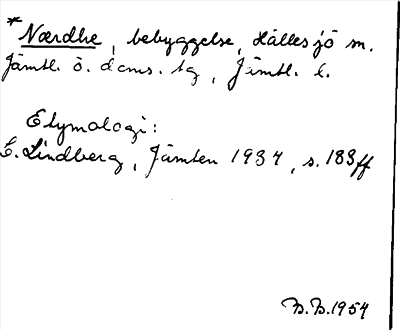 *Nærdhe, bebyggelse, Hällesjö sn.
Jämtl. ö. doms. tg, Jämtl. l.
Etymologi:
E. Lindberg, Jämten 1937, s. 183ff
B.B. 1954